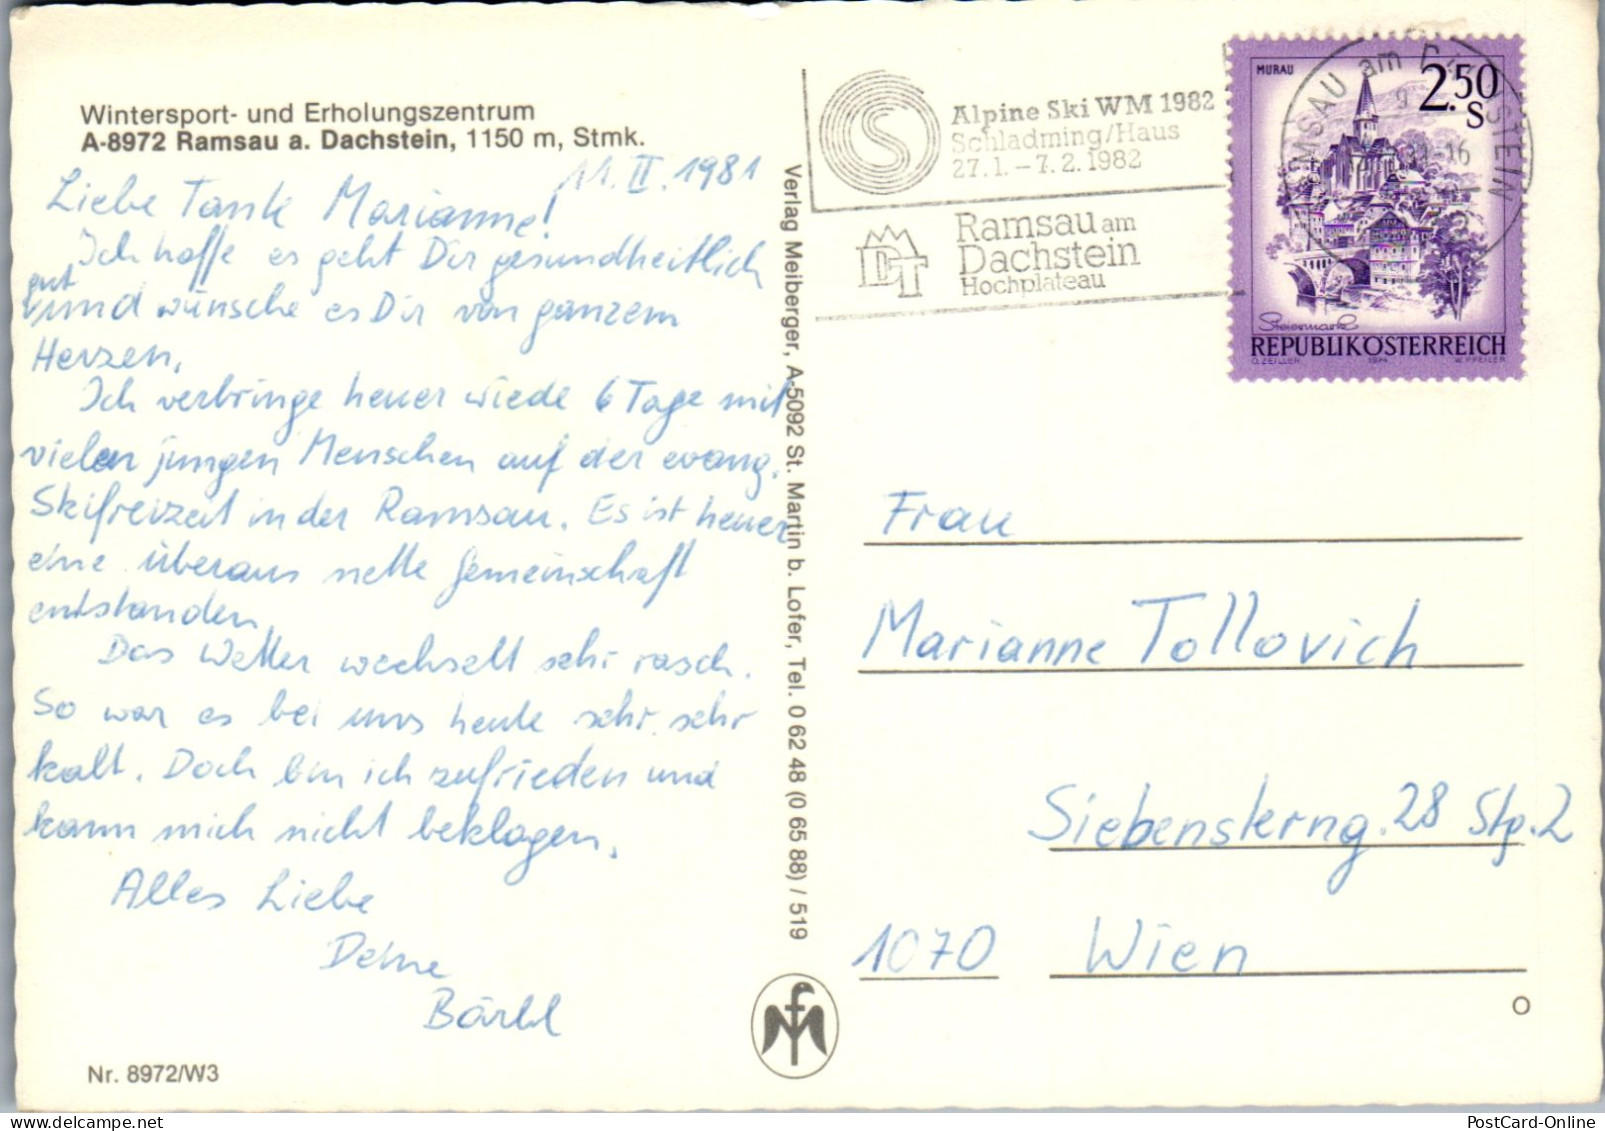 Wintersport- und Erholungszentrum
A-8972 Ramsau a. Dachstein, 1150 m, Stmk.
11. II. 1981
Liebe Tante Marianne!
Ich hoffe es geht Dir gesundheitlich
gut
und wünsche es Dir von ganzem
Herzen.
Ich verbringe heuer wiede 6 Tage mit
vielen jungen Menschen auf der evang.
Skifreizeit in der Ramsau. Es ist heuer
eine überaus nette Gemeinschaft
entstanden.
Das Wetter wechselt sehr rasch.
So war es bei uns heute sehr, sehr
kalt. Doch bin ich zufrieden und
kann mich nicht beklagen.
Alles Liebe
Deine
Bärbl
Nr. 8972/W3
Verlag Meiberger, A-5092 St. Martin b. Lofer, Tel. 0 62 48 (0 65 88) / 519
Alpine Ski WM 1982
Schladming/Haus
27.1. – 7.2. 1982
Ramsau am
Dachstein
Hochplateau
DT
MURAU
2.50
S
Steiermark
REPUBLIK ÖSTERREICH
O. ZEILLER 1974 W. PFEILER
Frau
Marianne Tollovich
Siebensterng. 28 Stg. 2
1070 Wien
PostCard-Online